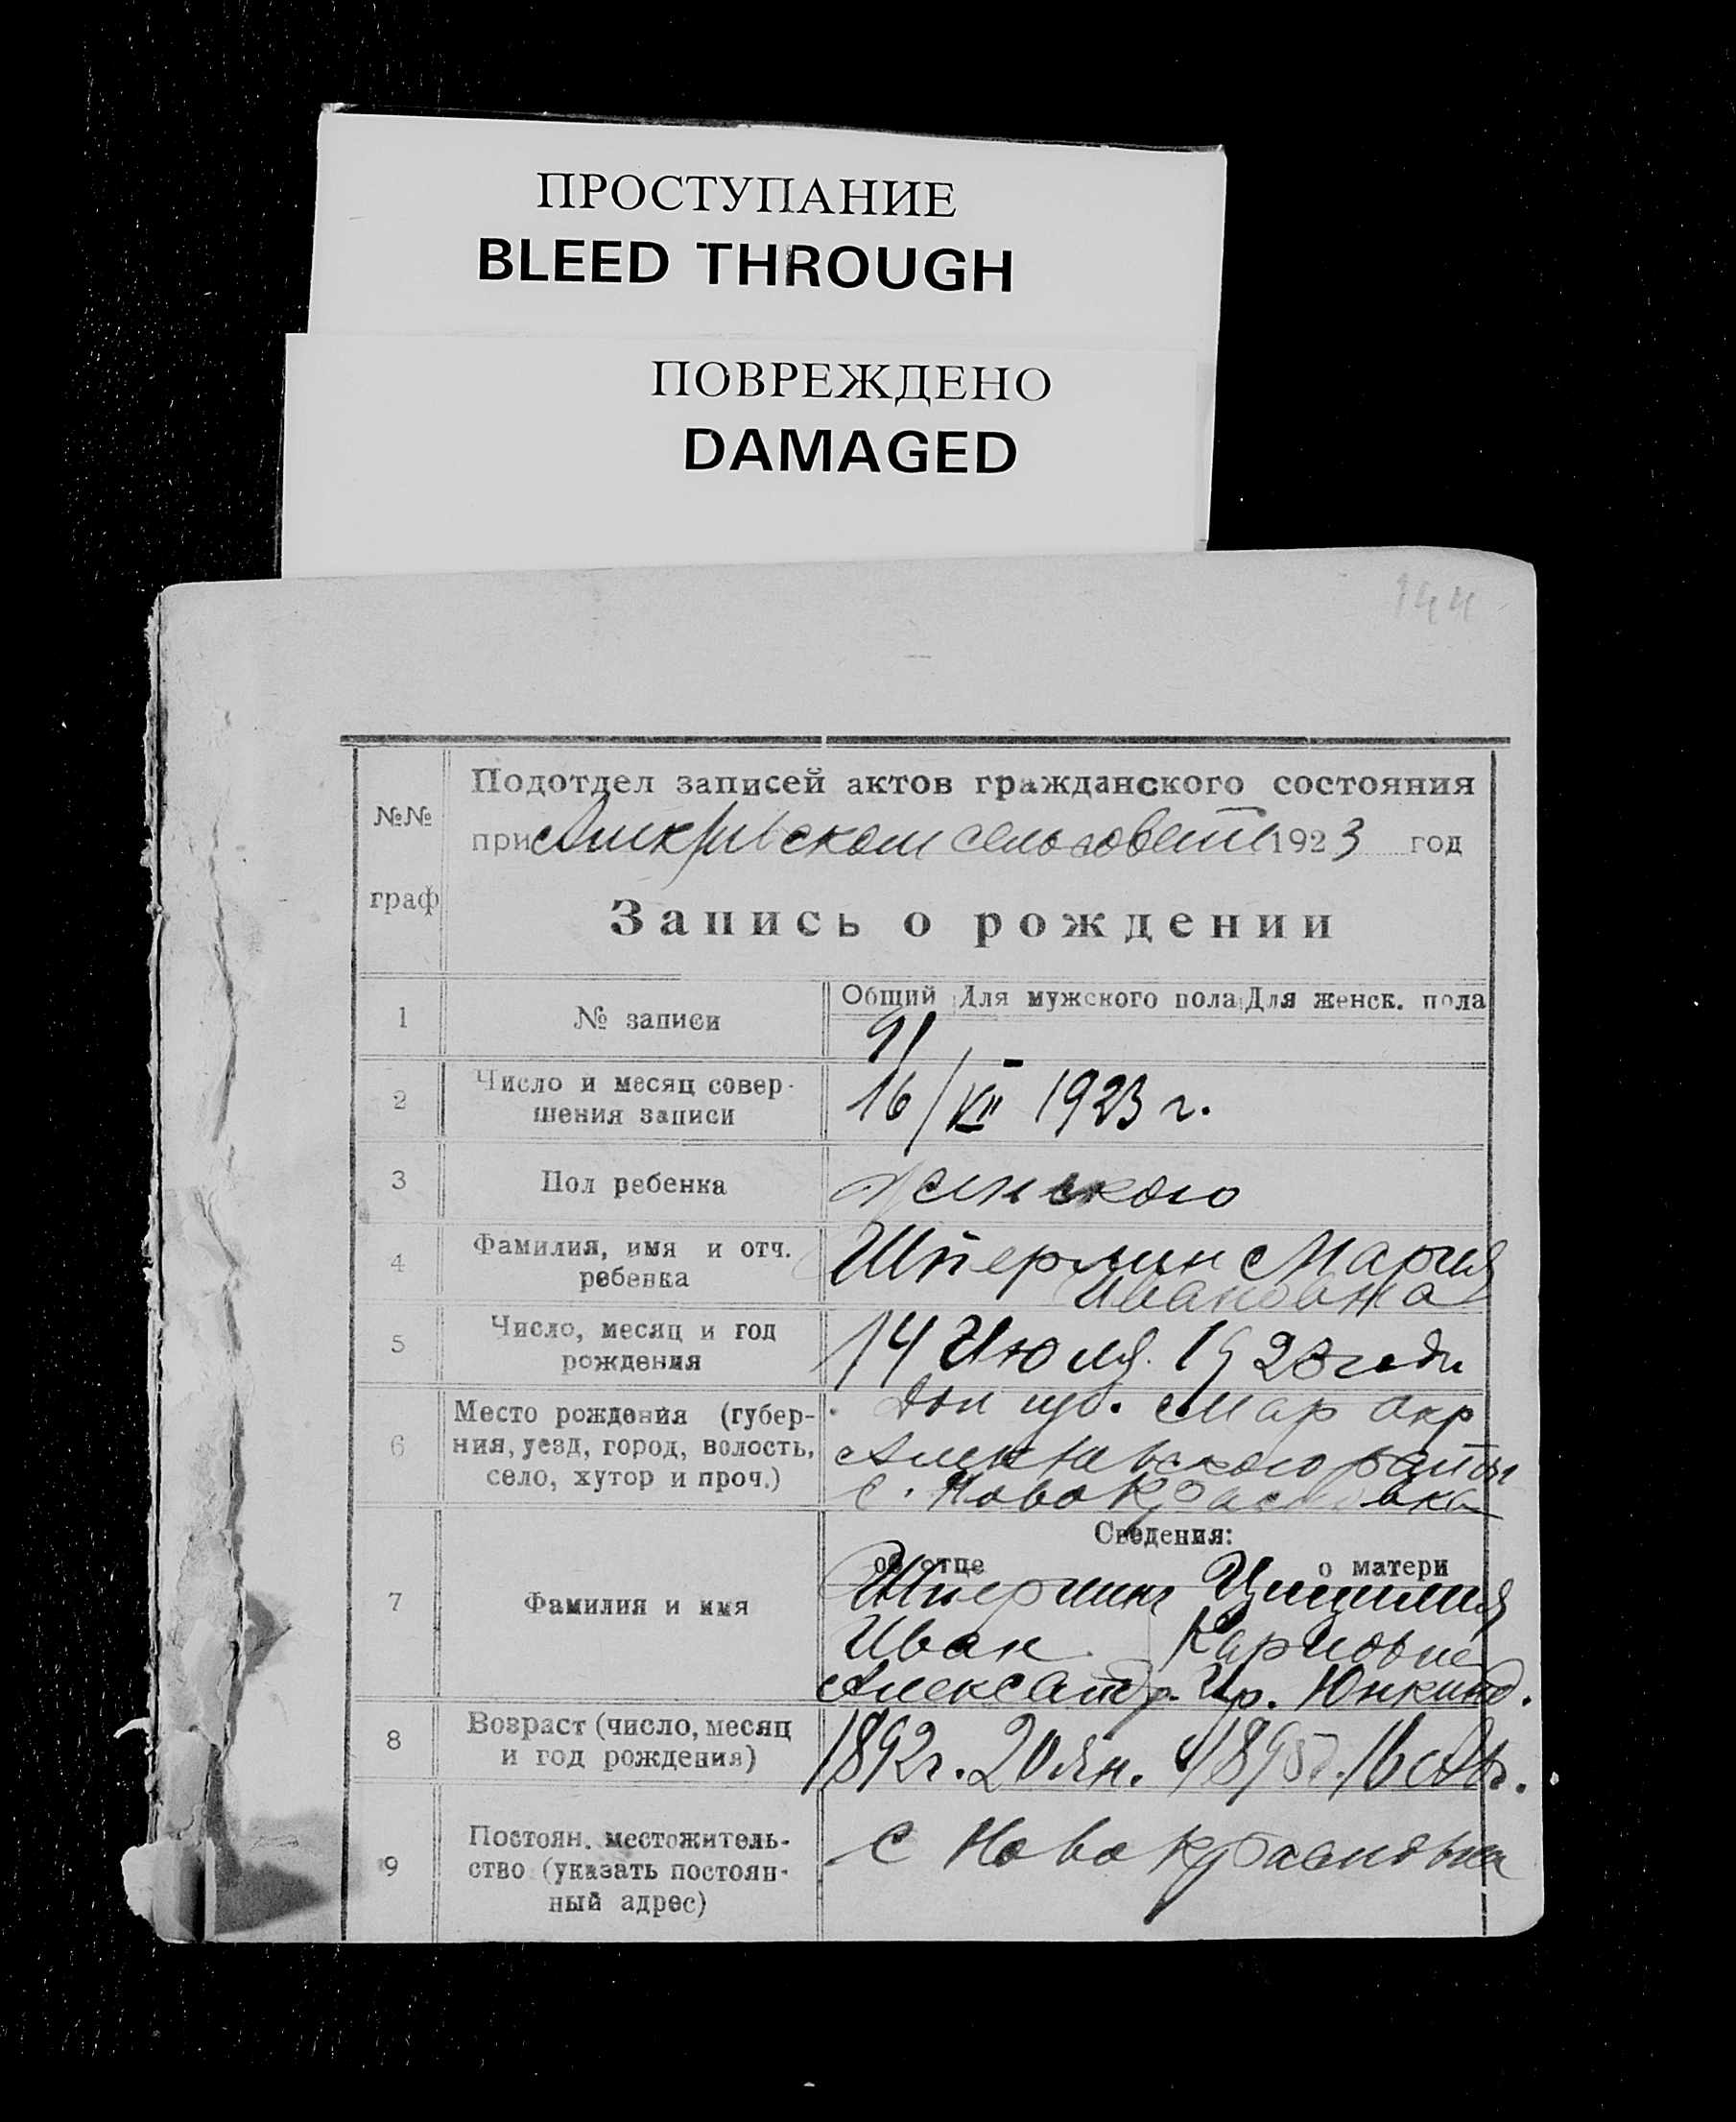 ПРОСТУПАНИЕ
BLEED THROUGH
ПОВРЕЖДЕНО
DAMAGED
144
№№ граф
Подотдел записей актов гражданского состояния
при сельсовете 1923 год
Запись о рождении
1 № записи
Общий Для мужского пола Для женск. пола
91
2 Число и месяц совер-
шения записи
16/VII 1923 г.
3 Пол ребенка
женского
4 Фамилия, имя и отч.
ребенка
Штерлин Мария
Ивановна
5 Число, месяц и год
рождения
14 Июля 1923 года
6 Место рождения (губер-
ния, уезд, город, волость,
село, хутор и проч.)
Дон губ. Мар окр
с. Ново Красновка
Сведения:
об отце о матери
7 Фамилия и имя
Иван
Александр. Ур. Юнкинд.
8 Возраст (число, месяц
и год рождения)
1892г. 20 Ян. 1895г. 16 Авг.
9 Постоян. местожитель-
ство (указать постоян-
ный адрес)
С Ново Красновка